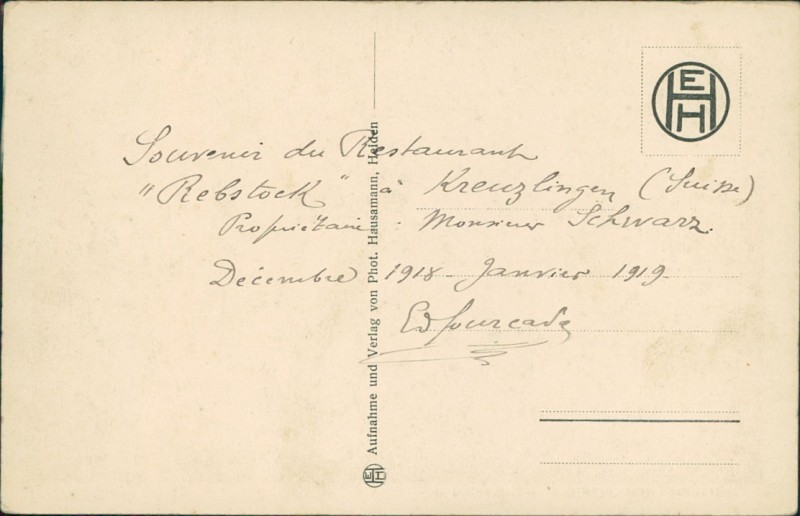 Souvenir du Restaurant
"Rebstock" à Kreuzlingen (Suisse)
Propriétaire : Monsieur Schwarz.
Décembre 1918 - Janvier 1919
Ed Fourcade
Aufnahme und Verlag von Phot. Hausamann, Heiden
EHH
EHH